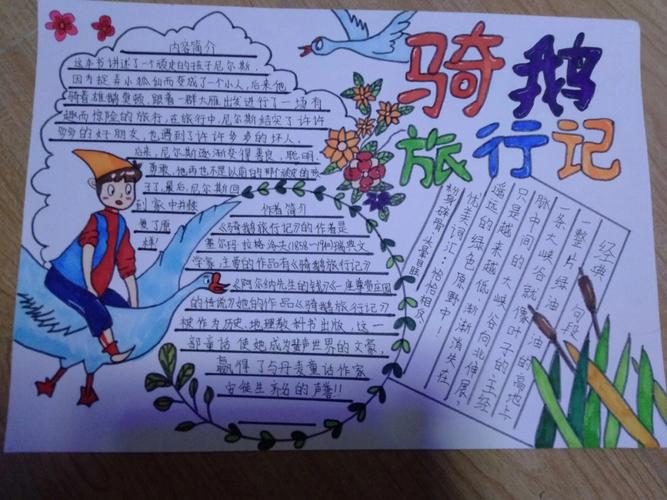 骑鹅
旅行记
内容简介
这本书讲述了一个顽皮的孩子尼尔斯,
因为捉弄小狐仙而变成了一个小人,后来他
骑着雄鹅莫顿,跟着一群大雁出发进行了一场有
趣而惊险的旅行,在旅行中,尼尔斯结实了许许
多多的好朋友,也遇到了许许多多的坏人,
后来,尼尔斯逐渐变得善良,聪明,
勇敢,他再也不是以前的那个顽皮的孩
子了,最后,尼尔斯回
到家中并恢
复了原
样!
作者简介
《骑鹅旅行记》的作者是
塞尔玛·拉格洛夫(1858-1940)瑞典文
学家,主要的作品有《骑鹅旅行记》
《阿尔纳先生的钱》《一座尊贵庄园
的传说》她的作品《骑鹅旅行记》
被作为历史、地理教科书出版,这一
部童话使她成为蜚声世界的文豪,
赢得了与丹麦童话作家
安徒生齐名的声誉!!
经典句段
一整片绿油油的高地与
一条大峡谷就像叶子的主经
脉中间的大峡谷向北伸展,
只是越来越低,渐渐消失在
遥远的绿色原野中!
优美词汇:恰恰相反、
粉身碎骨、头晕目眩